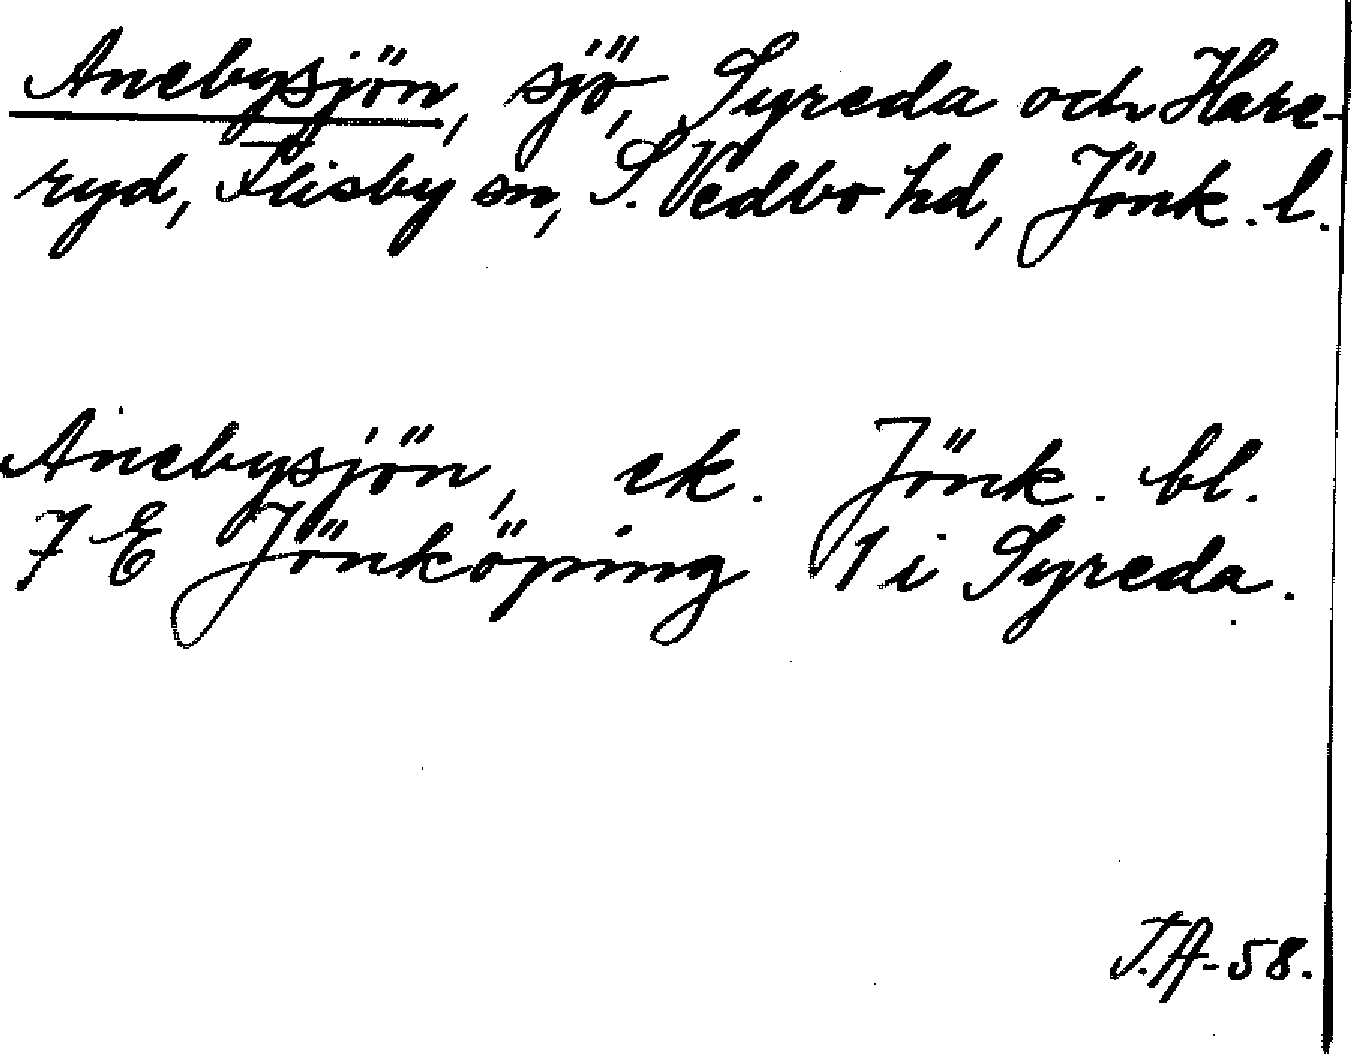 Anebysjön, sjö, Syreda och Hare-
ryd, Flisby sn, S. Vedbo hd, Jönk. l.
Anebysjön, ek. Jönk. bl.
7 E Jönköping 1 i Syreda.
J.A-58.